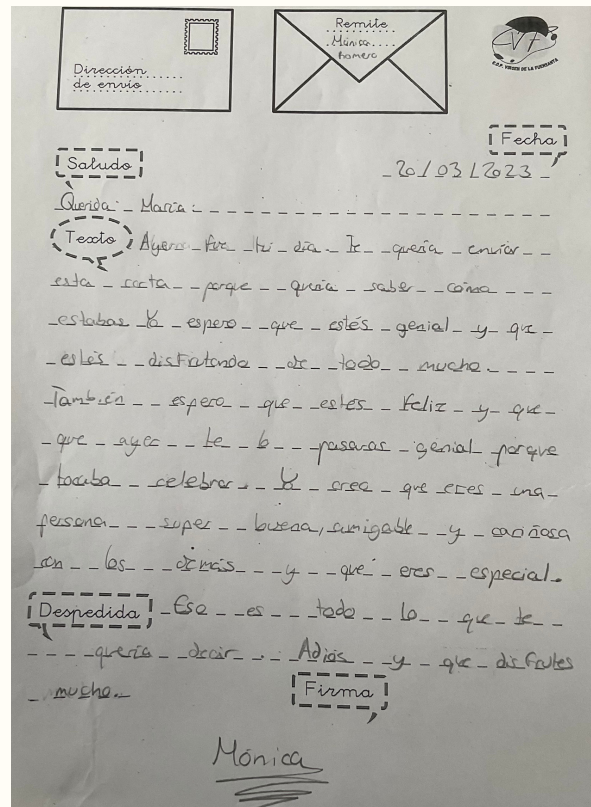 Dirección
de envío
Remite
Mónica
Romero
C.D.P. VIRGEN DE LA FUENSANTA
Fecha
Saludo
20/03/2023
Querida María:
Texto Ayer fue tu día. Te quería enviar
esta carta porque quería saber cómo
estabas Yo espero que estés genial y que
estés disfrutando de todo mucho.
También espero que estes feliz y que
que ayer te lo pasaras genial porque
tocaba celebrar. Yo creo que eres una
persona super buena, amigable y cariñosa
con los demás y que eres especial.
Despedida Eso es todo lo que te
quería decir. Adiós y que disfrutes
mucho.
Firma
Mónica